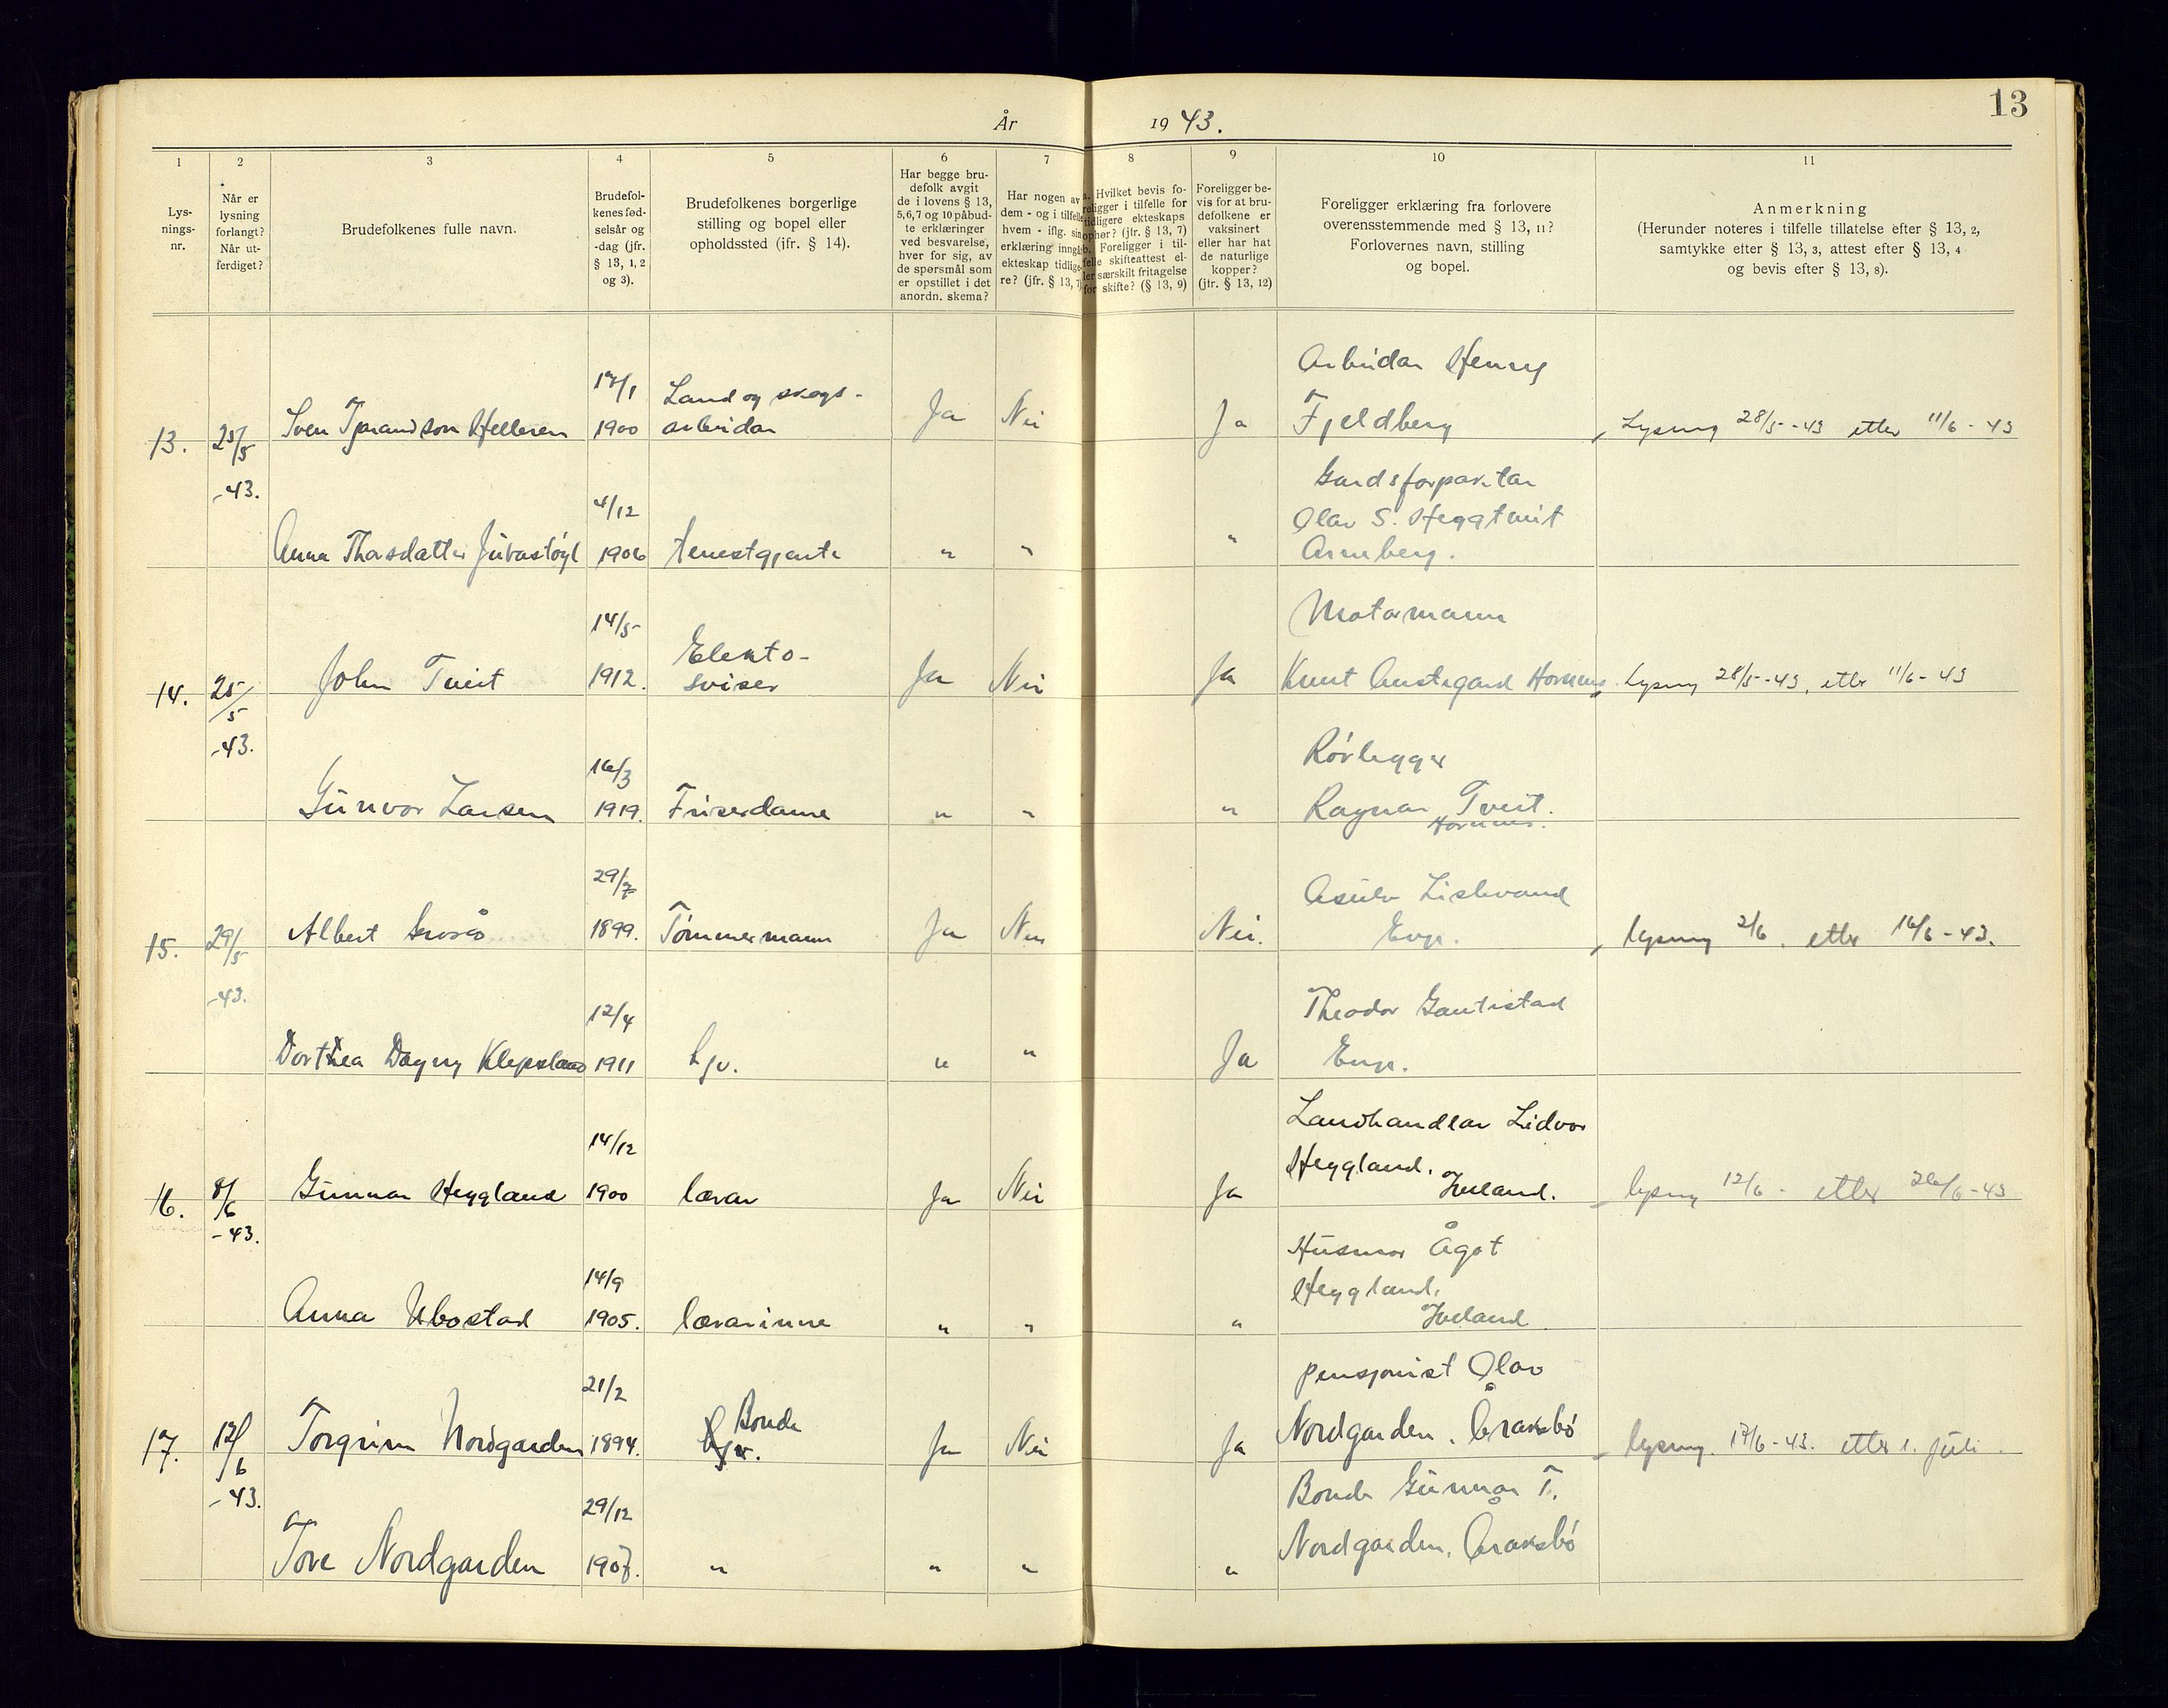 13
År 1943.
1
2
3
4
5
6
7
8
9
10
11
Lys-
nings-
nr.
Når er
lysning
forlangt?
Når ut-
ferdiget?
Brudefolkenes fulle navn.
Brudefol-
kenes fød-
selsår og
-dag (jfr.
§ 13, 1, 2
og 3).
Brudefolkenes borgerlige
stilling og bopel eller
opholdssted (jfr. § 14).
Har begge bru-
defolk avgit
de i lovens § 13,
5,6,7 og 10 påbud-
te erklæringer
ved besvarelse,
hver for sig, av
de spørsmål som
er opstillet i det
anordn. skema?
Har nogen av
dem - og i tilfelle
hvem - iflg. sin
erklæring inngå
ekteskap tidlige-
re? (jfr. § 13, 7)
a. Hvilket bevis fo-
religger i tilfelle for
tidligere ekteskaps
ophør? (jfr. § 13, 7)
b. Foreligger i til-
felle skifteattest el-
ler særskilt fritagelse
for skifte? (§ 13, 9)
Foreligger be-
vis for at bru-
defolkene er
vaksinert
eller har hat
de naturlige
kopper?
(jfr. § 13, 12)
Foreligger erklæring fra forlovere
overensstemmende med § 13, 11?
Forlovernes navn, stilling
og bopel.
Anmerkning
(Herunder noteres i tilfelle tillatelse efter § 13, 2,
samtykke efter § 13, 3, attest efter § 13, 4
og bevis efter § 13, 8).
Arbeidar Henry
Land og skogs-
13. 25/5 Sven Helleren 1900 arbeidar Ja Nei Ja Fjeldberg Lysing 28/5-43 etter 11/6-43
-43.
Gardsforpaktar
4/12
Olav S. Heggtveit
Anna Thorsdatter 1906 tenestgjente " " "
14/5
Motormann
14. 25/5 John Tveit 1912. Elekto-
sviser Ja Nei Ja Knut Austegard Hornnes Lysing 28/5-43, etter 11/6-43
-43.
16/3
Rørlegger
Gunvor Larsen 1919. Friserdame " " " Ragnar Tveit.
Hornnes.
29/7
15. 29/5 Albert 1899. Tømmermann Ja Nei Nei. lysing 2/6. etter 16/6-43.
-43.
12/4
Theodor Gautestad
Dorthea Dagny Klepsland 1911 " " Ja
Landhandlar Lidvor
14/12
Heggland.
16. 8/6 Gunnar Heggland 1900 lærar Ja Nei Ja Iveland. lysing 12/6- etter 26/6-43
-43.
14/9
Husmor Ågot
Heggland,
Anna Ubostad 1905. lærarinne " " " Iveland
21/2
pensjonist Olav
Bonde
17. 12/6 Torgrim Nordgarden 1894. Ja Nei Ja Nordgarden, Åraksbø lysing 17/6-43. etter 1. juli
-43.
29/12
Bonde Gunnar T.
Tore Nordgarden 1907. " " " " Nordgarden, Åraksbø